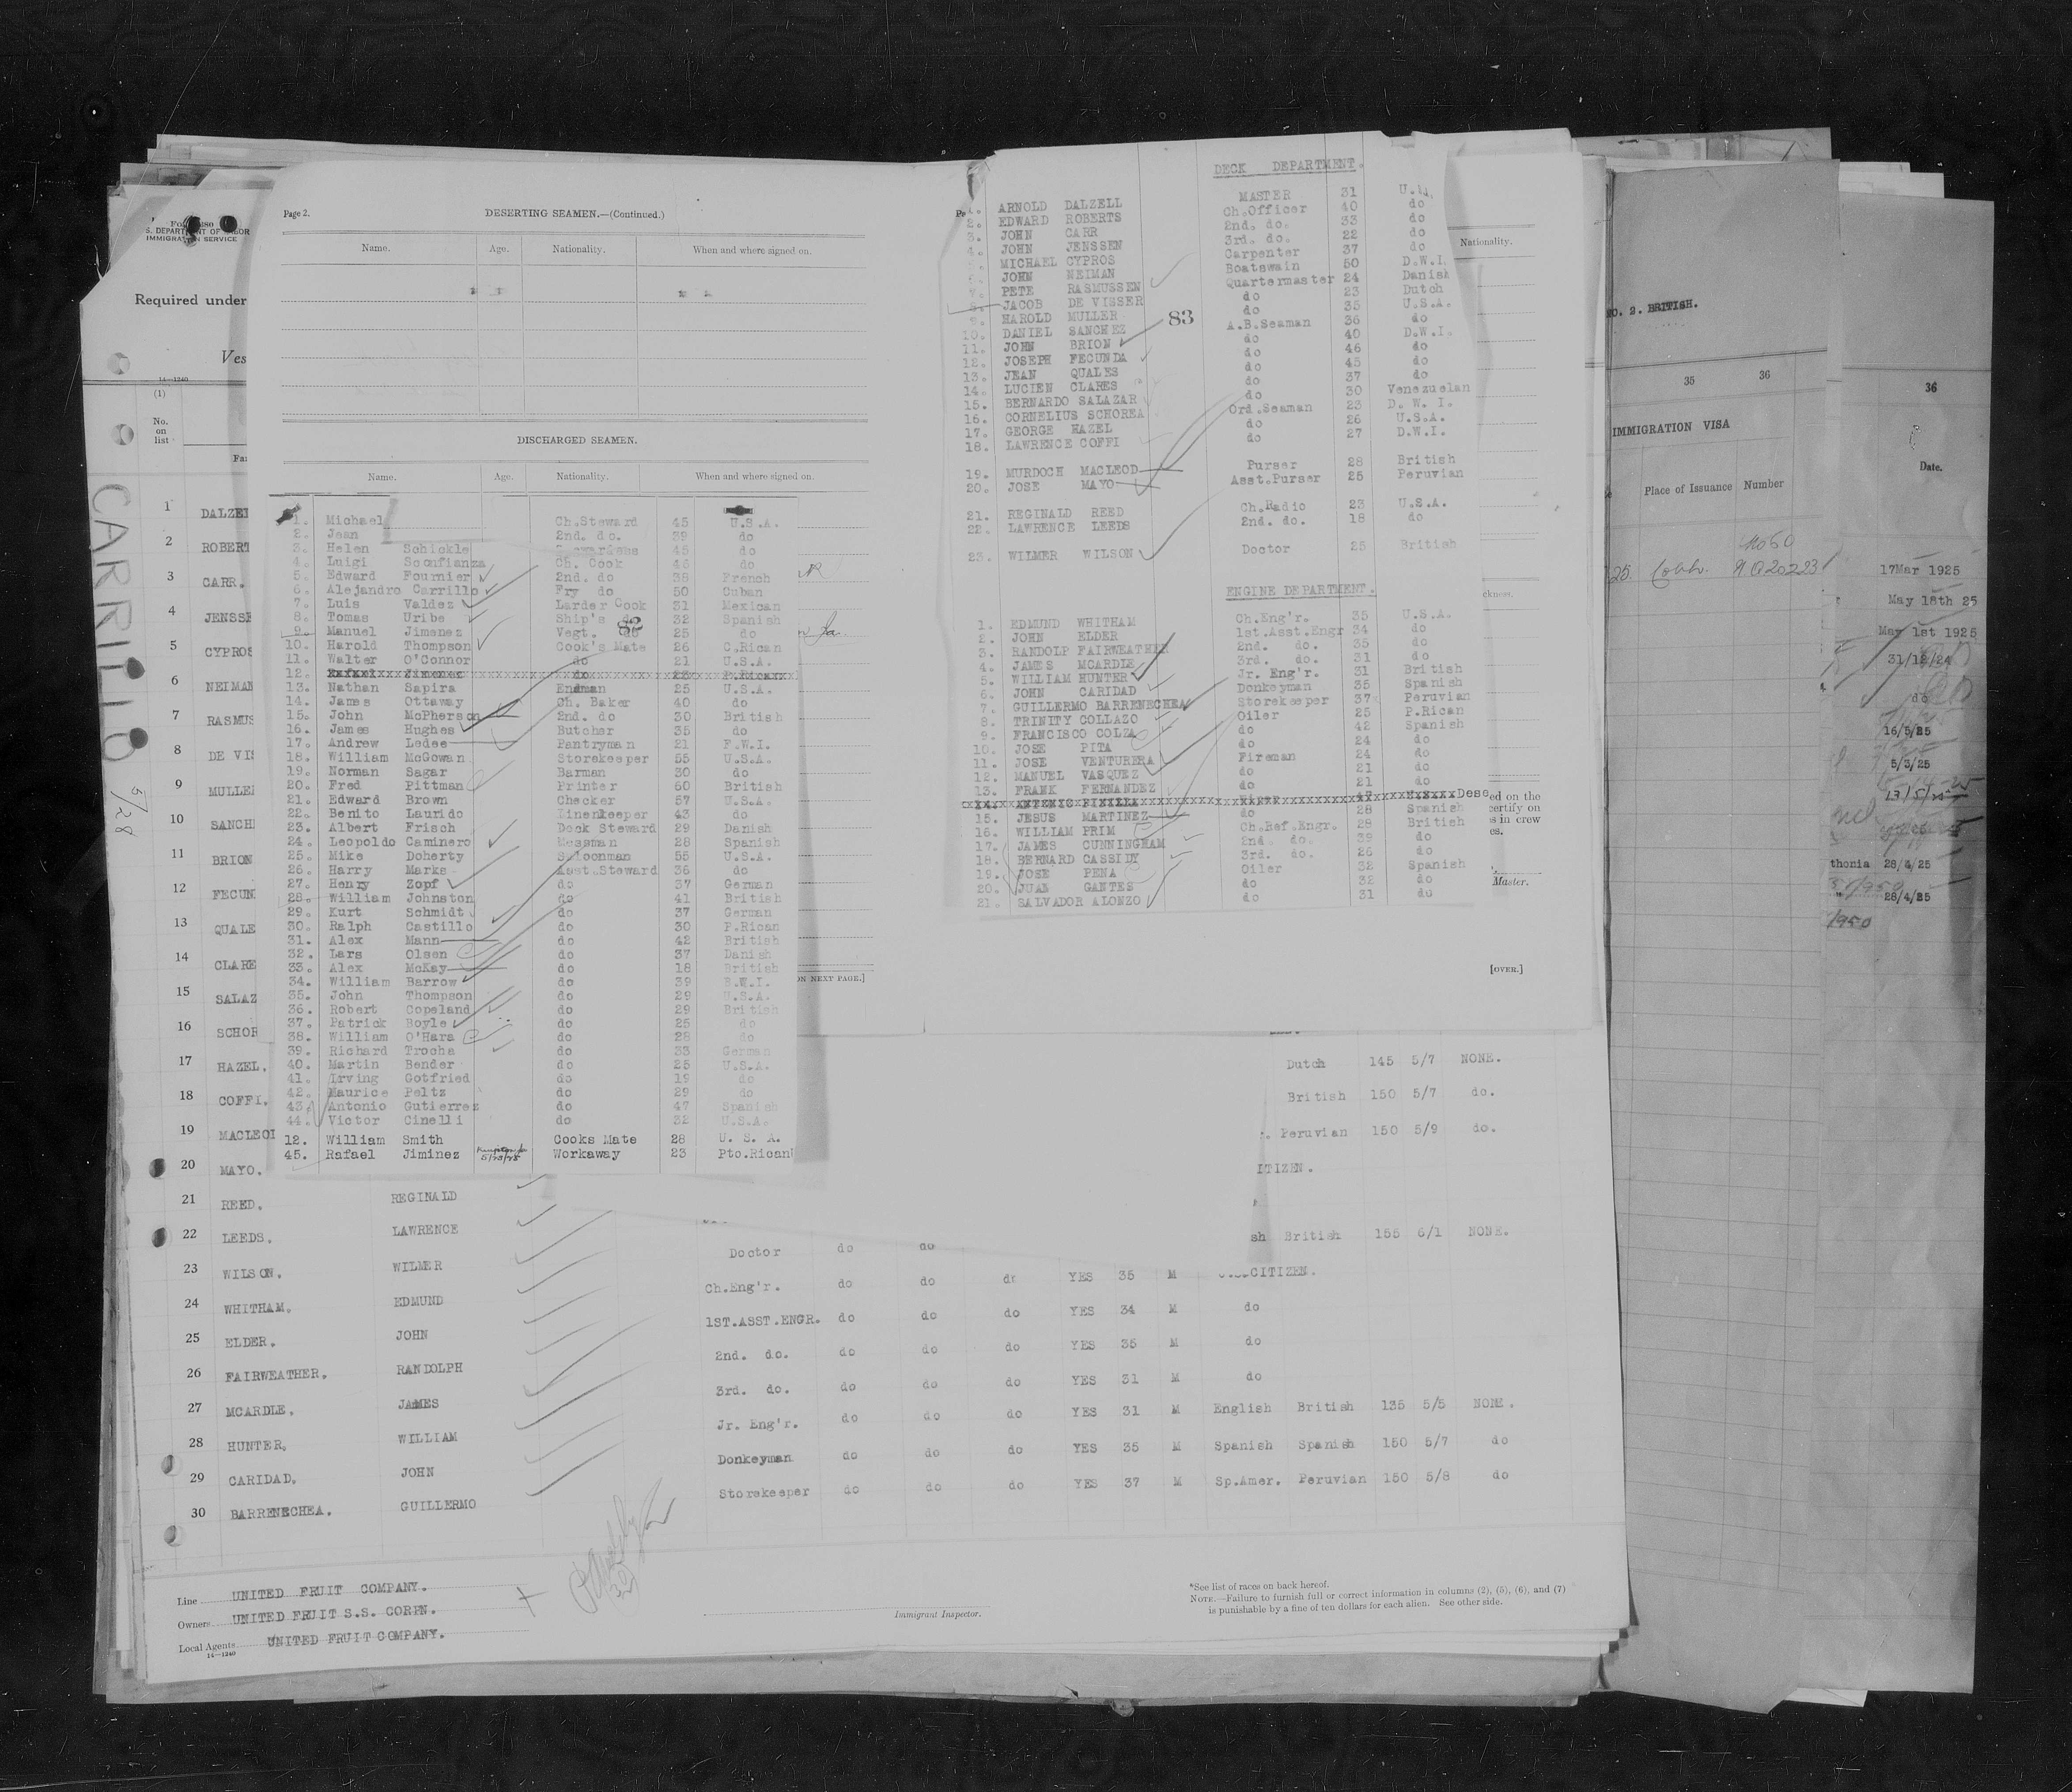 Page 2. DESERTING SEAMEN.—(Continued.)
Name. Age. Nationality. When and where signed on.
DISCHARGED SEAMEN.
Name. Age. Nationality. When and where signed on.
1. Michael Ch.Steward 45 U.S.A.
2. Jean 2nd. do. 39 do
3. Helen Schickle 45 do
4. Luigi Sconfianza Ch. Cook 46 do
5. Edward Fournier 2nd. do 38 French
6. Alejandro Carrillo Fry do 50 Cuban
7. Luis Valdez Larder Cook 31 Mexican
8. Tomas Uribe Ship's 32 Spanish
82
9. Manuel Jimenez Vegt. do 25 do
10. Harold Thompson Cook's Mate 26 C.Rican
11. Walter O'Connor do 21 U.S.A.
12. Rafael Jimenez do P.Rican
13. Nathan Sapira Endman 25 U.S.A.
14. James Ottaway Ch. Baker 40 do
15. John McPherson 2nd. do 30 British
16. James Hughes Butcher 35 do
17. Andrew Ledee Pantryman 21 F.W.I.
18. William McGowan Storekeeper 55 U.S.A.
19. Norman Sagar Barman 30 do
20. Fred Pittman Printer 60 British
21. Edward Brown Checker 57 U.S.A.
22. Benito Laurido Linenkeeper 43 do
23. Albert Frisch Deck Steward 29 Danish
24. Leopoldo Caminero Messman 28 Spanish
25. Mike Doherty Saloonman 55 U.S.A.
26. Harry Marks Asst.Steward 36 do
27. Henry Zopf do 37 German
28. William Johnston do 41 British
29. Kurt Schmidt do 37 German
30. Ralph Castillo do 30 P.Rican
31. Alex Mann do 42 British
32. Lars Olsen do 37 Danish
33. Alex McKay do 18 British
34. William Barrow do 39 B.W.I.
35. John Thompson do 29 U.S.A.
36. Robert Copeland do 29 British
37. Patrick Boyle do 25 do
38. William O'Hara do 28 do
39. Richard Trocha do 33 German
40. Martin Bender do 25 U.S.A.
41. Irving Gotfried do 19 do
42. Maurice Peltz do 29 do
43. Antonio Gutierrez do 47 Spanish
44. Victor Cinelli do 32 U.S.A.
12. William Smith Cooks Mate 28 U. S. A.
45. Rafael Jiminez 5/23/25 Workaway 23 Pto.Rican
ON NEXT PAGE.]
DECK DEPARTMENT.
1. ARNOLD DALZELL MASTER 31
2. EDWARD ROBERTS Ch.Officer 40 do
3. JOHN CARR 2nd. do. 33 do
4. JOHN JENSSEN 3rd. do. 22 do
5. MICHAEL CYPROS Carpenter 37 do
6. JOHN NEIMAN Boatswain 50 D.W.I.
7. PETE RASMUSSEN Quartermaster 24 Danish
8. JACOB DE VISSER do 23 Dutch
9. HAROLD MULLER do 35 U.S.A.
83
10. DANIEL SANCHEZ A.B.Seaman 36 do
11. JOHN BRION do 40 D.W.I.
12. JOSEPH FECUNDA do 46 do
13. JEAN QUALES do 45 do
14. LUCIEN CLARES do 37 do
15. BERNARDO SALAZAR do 30 Venezuelan
16. CORNELIUS SCHOREA Ord.Seaman 23 D. W. I.
17. GEORGE HAZEL do 26 U.S.A.
18. LAWRENCE COFFI do 27 D.W.I.
19. MURDOCH MACLEOD Purser 28 British
20. JOSE MAYO Asst.Purser 25 Peruvian
21. REGINALD REED Ch.Radio 23 U.S.A.
22. LAWRENCE LEEDS 2nd. do. 18 do
23. WILMER WILSON Doctor 25 British
ENGINE DEPARTMENT.
1. EDMUND WHITHAM Ch.Eng'r. 35 U.S.A.
2. JOHN ELDER 1st.Asst.Engr 34 do
3. RANDOLP FAIRWEATHER 2nd. do. 35 do
4. JAMES MCARDLE 3rd. do. 31 do
5. WILLIAM HUNTER Jr. Eng'r. 31 British
6. JOHN CARIDAD Donkeyman 35 Spanish
7. GUILLERMO BARRENECHEA Storekeeper 37 Peruvian
8. TRINITY COLLAZO Oiler 25 P.Rican
9. FRANCISCO COLZA do 42 Spanish
10. JOSE PITA do 24 do
11. JOSE VENTURERA Fireman 24 do
12. MANUEL VASQUEZ do 21 do
13. FRANK FERNANDEZ do 21 do
14. Dese
15. JESUS MARTINEZ do 28 Spanish
16. WILLIAM PRIM Ch.Ref.Engr. 28 British
17. JAMES CUNNINGHAM 2nd. do. 39 do
18. BERNARD CASSIDY 3rd. do. 26 do
19. JOSE PENA Oiler 32 Spanish
20. JUAN GANTES do 32 do
21. SALVADOR ALONZO do 31 do
Nationality.
ckness.
ed on the
certify on
s in crew
es.
Master.
[OVER.]
S. DEPARTMENT OF LABOR
IMMIGRATION SERVICE
Required under
Ves
14—1240
(1)
No. on list
CARRILLO 5/28
1 DALZE
2 ROBERT
3 CARR.
4 JENSSE
5 CYPROS
6 NEIMAN
7 RASMUS
8 DE VIS
9 MULLE
10 SANCH
11 BRION
12 FECUN
13 QUALE
14 CLARE
15 SALAZ
16 SCHOR
17 HAZEL. Dutch 145 5/7 NONE.
18 COFFI. British 150 5/7 do.
19 MACLEOD Peruvian 150 5/9 do.
20 MAYO. ITIZEN.
21 REED. REGINALD
22 LEEDS. LAWRENCE
23 WILSON. WILMER Doctor do do sh British 155 6/1 NONE.
24 WHITHAM. EDMUND Ch.Eng'r. do do do YES 35 M CITIZEN.
25 ELDER. JOHN 1ST.ASST.ENGR. do do do YES 34 M do
26 FAIRWEATHER. RANDOLPH 2nd. do. do do do YES 35 M do
27 MCARDLE. JAMES 3rd. do. do do do YES 31 M do
28 HUNTER. WILLIAM Jr. Eng'r. do do do YES 31 M English British 135 5/5 NONE.
29 CARIDAD. JOHN Donkeyman do do do YES 35 M Spanish Spanish 150 5/7 do
30 BARRENECHEA. GUILLERMO Storekeeper do do do YES 37 M Sp.Amer. Peruvian 150 5/8 do
Line UNITED FRUIT COMPANY.
Owners UNITED FRUIT S.S. CORPN.
Local Agents UNITED FRUIT COMPANY.
14—1240
Immigrant Inspector.
*See list of races on back hereof.
NOTE.—Failure to furnish full or correct information in columns (2), (5), (6), and (7)
is punishable by a fine of ten dollars for each alien. See other side.
NO. 2. BRITISH.
35 36
IMMIGRATION VISA
Place of Issuance Number
36
Date.
17Mar 1925
May 18th 25
May 1st 1925
31/12/24
do
16/5/25
5/3/25
thonia 28/4/25
28/4/25
1950